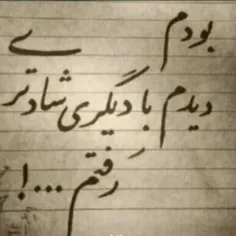 بودم
دیدم با دیگری شادتری
رَفتم...!